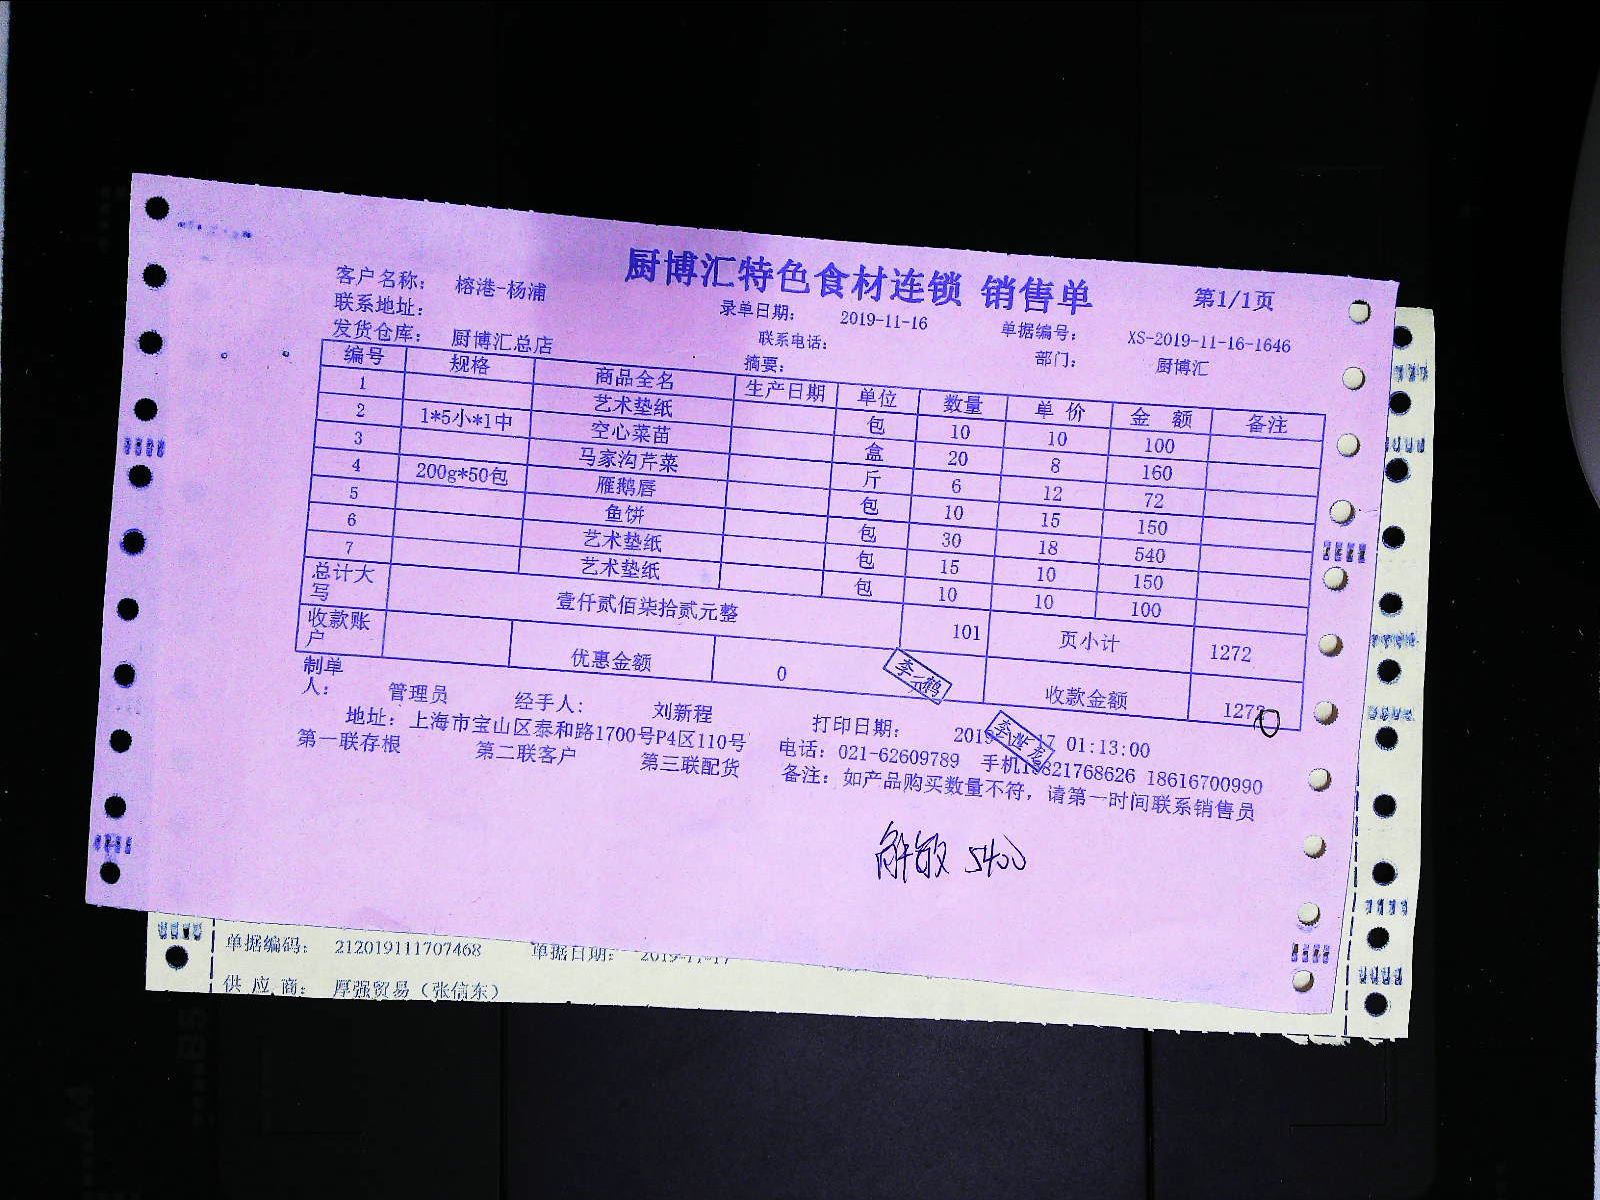 厨博汇特色食材连锁 销售单
第1/1页
客户名称： 榕港-杨浦
录单日期： 2019-11-16
单据编号： XS-2019-11-16-1646
联系地址：
联系电话：
部门： 厨博汇
发货仓库： 厨博汇总店
摘要：
编号 规格 商品全名 生产日期 单位 数量 单价 金额 备注
1 艺术垫纸 包 10 10 100
2 1*5小*1中 空心菜苗 盒 20 8 160
3 马家沟芹菜 斤 6 12 72
4 200g*50包 雁鹅唇 包 10 15 150
5 鱼饼 包 30 18 540
6 艺术垫纸 包 15 10 150
7 艺术垫纸 包 10 10 100
总计大写 壹仟贰佰柒拾贰元整 101 页小计 1272
收款账户 优惠金额 0 收款金额 1272
制单人： 管理员 经手人： 刘新程 打印日期： 2019 17 01:13:00
地址：上海市宝山区泰和路1700号P4区110号 电话：021-62609789 手机 821768626 18616700990
第一联存根 第二联客户 第三联配货 备注：如产品购买数量不符，请第一时间联系销售员
5400
单据编码： 212019111707468 单据日期： 2019-11-17
供应商： 厚强贸易（张信东）